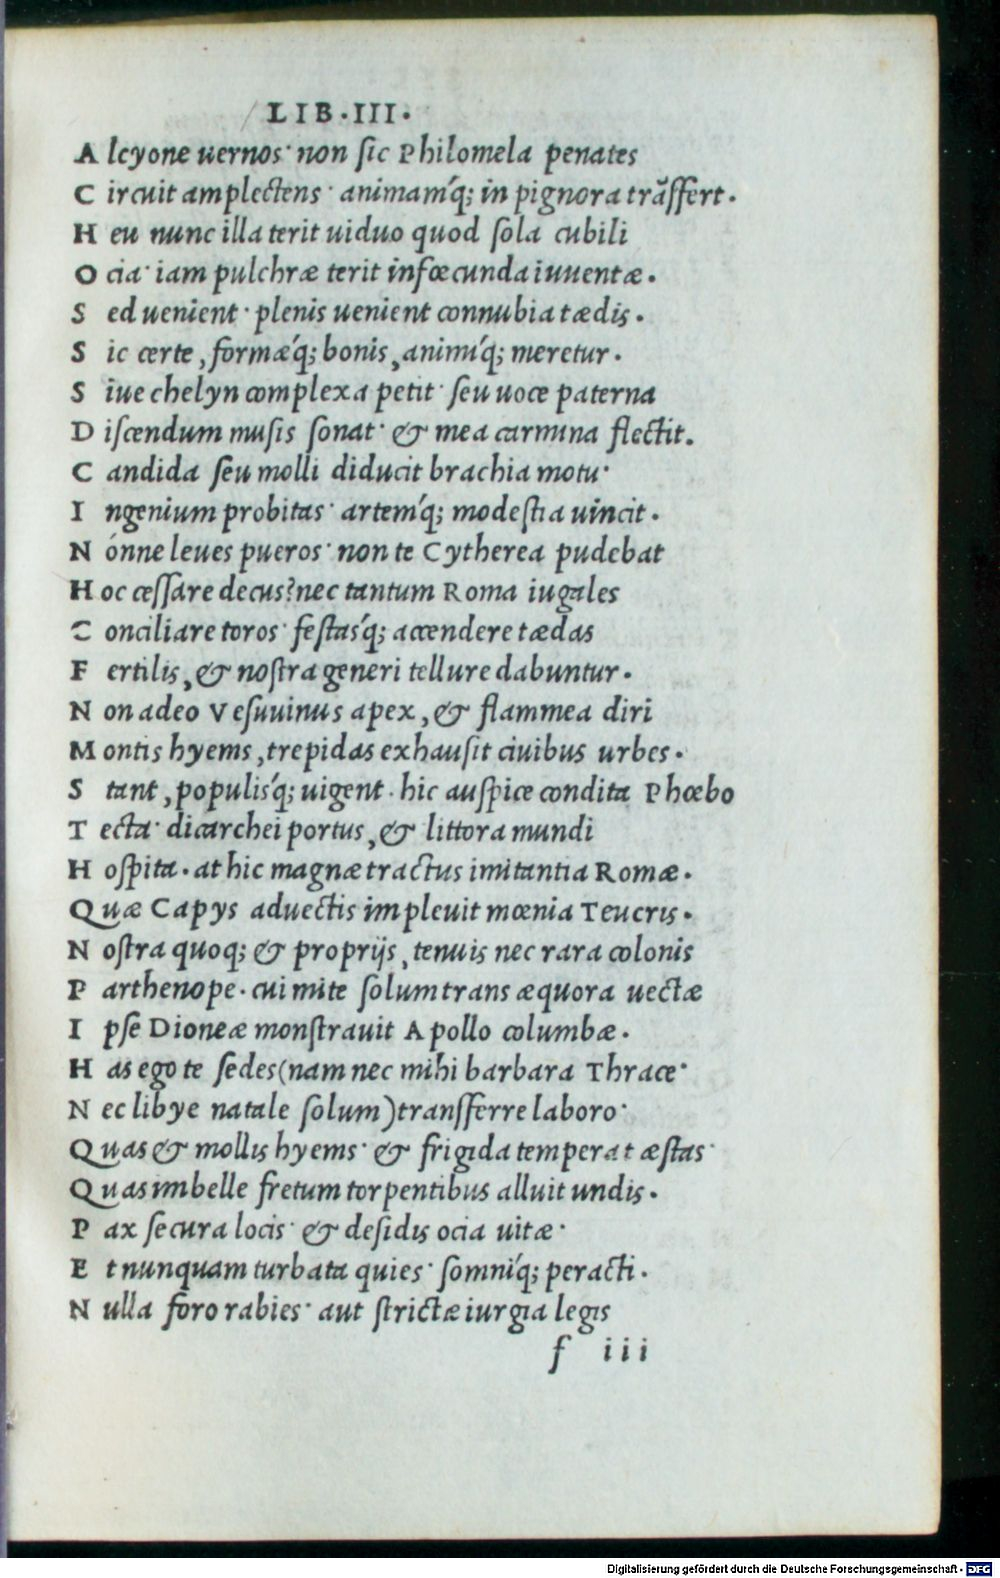 LIB·III·
A lcyone uernos· non ſic Philomela penates
C ircuit amplectens· animam'q; in pignora trãſfert.
H eu nunc illa terit uiduo quod ſola cubili
O cia· iam pulchræ terit infœcunda iuuentæ.
S ed uenient· plenis uenient connubia tædis.
S ic certe, formæ'q; bonis, animi'q; meretur.
S iue chelyn complexa petit· ſeu uoce paterna
D iſcendum muſis ſonat· & mea carmina flectit.
C andida ſeu molli diducit brachia motu·
I ngenium probitas· artem'q; modeſtia uincit.
N ónne leues pueros· non te Cytherea pudebat
H oc ceſſare decus? nec tantum Roma iugales
C onciliare toros· feſtas'q; accendere tædas
F ertilis, & noſtra generi tellure dabuntur.
N on adeo Veſuuinus apex, & flammea diri
M ontis hyems, trepidas exhauſit ciuibus urbes.
S tant, populis'q; uigent· hic auſpice condita Phœbo
T ecta· dicarchei portus, & littora mundi
H oſpita· at hic magnæ tractus imitantia Romæ.
Quæ Capys aduectis impleuit mœnia Teucris.
N oſtra quoq; & proprijs, tenuis nec rara colonis
P arthenope· cui mite ſolum trans æquora uectæ
I pſe Dioneæ monſtrauit Apollo columbæ.
H as ego te ſedes (nam nec mihi barbara Thrace·
N ec libye natale ſolum) tranſferre laboro·
Quas & mollis hyems· & frigida temperat æſtas·
Quas imbelle fretum torpentibus alluit undis.
P ax ſecura locis· & deſidis ocia uitæ·
E t nunquam turbata quies· ſomni'q; peracti.
N ulla foro rabies· aut ſtrictæ iurgia legis
f iii
Digitalisierung gefördert durch die Deutsche Forschungsgemeinschaft - DFG